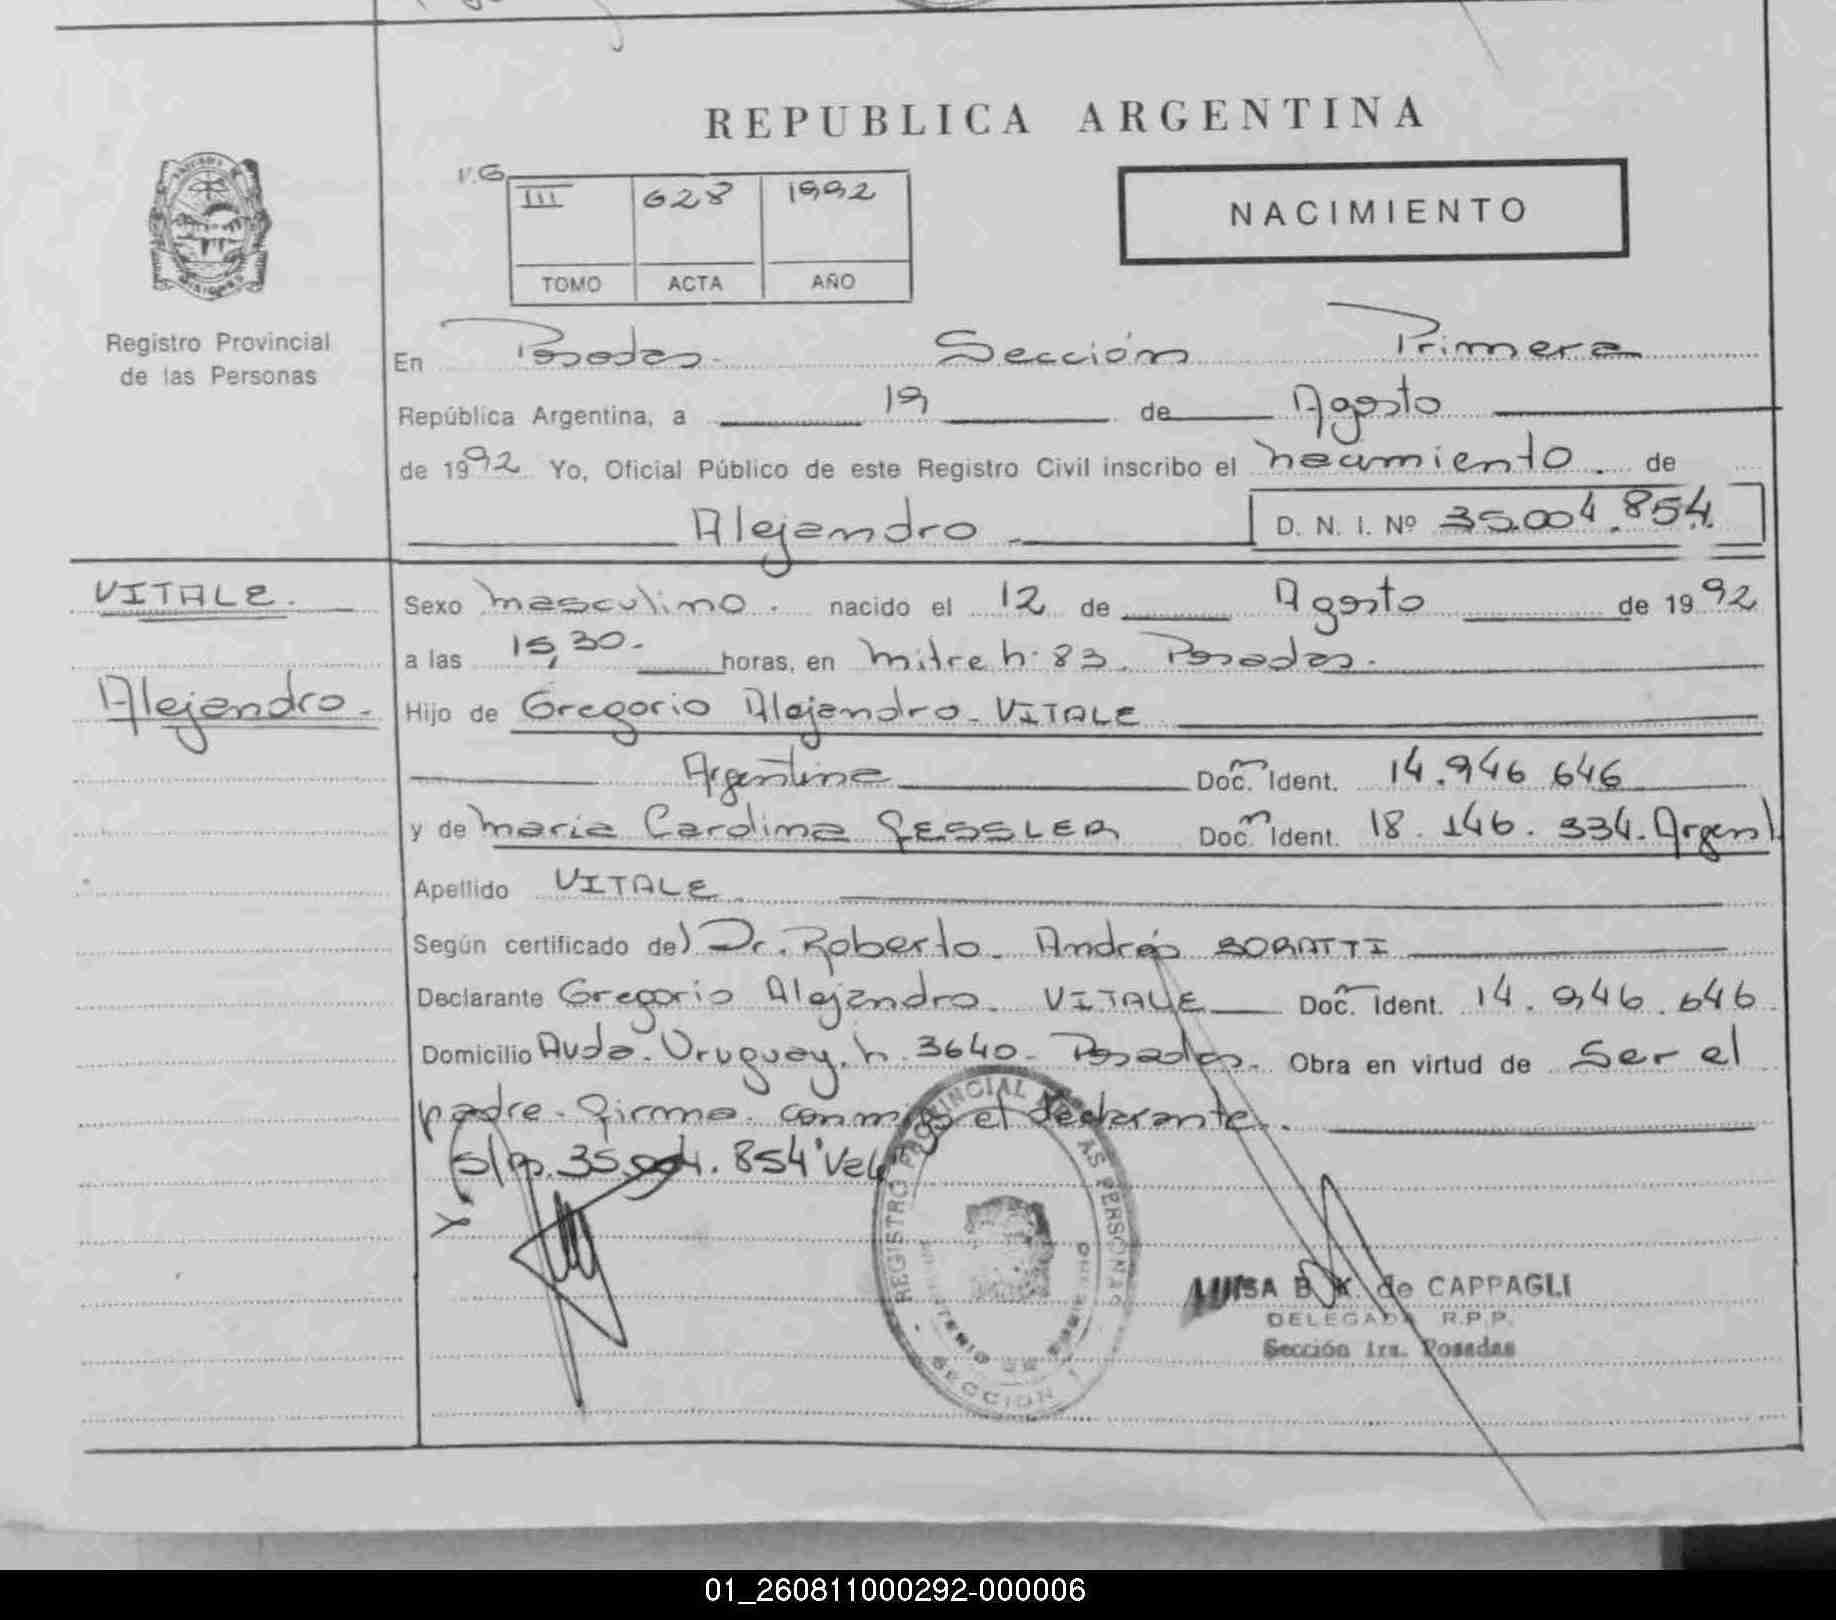 REPUBLICA ARGENTINA
V.G
III 628 1992
TOMO ACTA AÑO
NACIMIENTO
Registro Provincial
de las Personas
En Posadas. Sección Primera
República Argentina, a 19 de Agosto
de 1992 Yo, Oficial Público de este Registro Civil inscribo el nacimiento. de
Alejandro D. N. I. Nº 35.004.854.
VITALE.
Alejandro.
Sexo masculino. nacido el 12 de Agosto de 1992
a las 15,30. horas, en mitre n. 83. Posadas.
Hijo de Gregorio Alejandro VITALE
Argentina Docm. Ident. 14.946.646
y de maria Carolina GESSLER Docm. Ident. 18.146.334. Argent.
Apellido VITALE
Según certificado del Dr. Roberto Andrés BORATTI
Declarante Gregorio Alejandro VITALE Doc. Ident. 14.946.646
Domicilio Avda. Uruguay. n. 3640. Posadas. Obra en virtud de Ser el
padre. firma conmigo el declarante.
s/r. 35.004.854 Vale
REGISTRO PROVINCIAL DE LAS PERSONAS
MINISTERIO DE GOBIERNO
SECCION 1
LUISA B. K. de CAPPAGLI
DELEGADA R.P.P.
Sección 1ra. Posadas
01_260811000292-000006